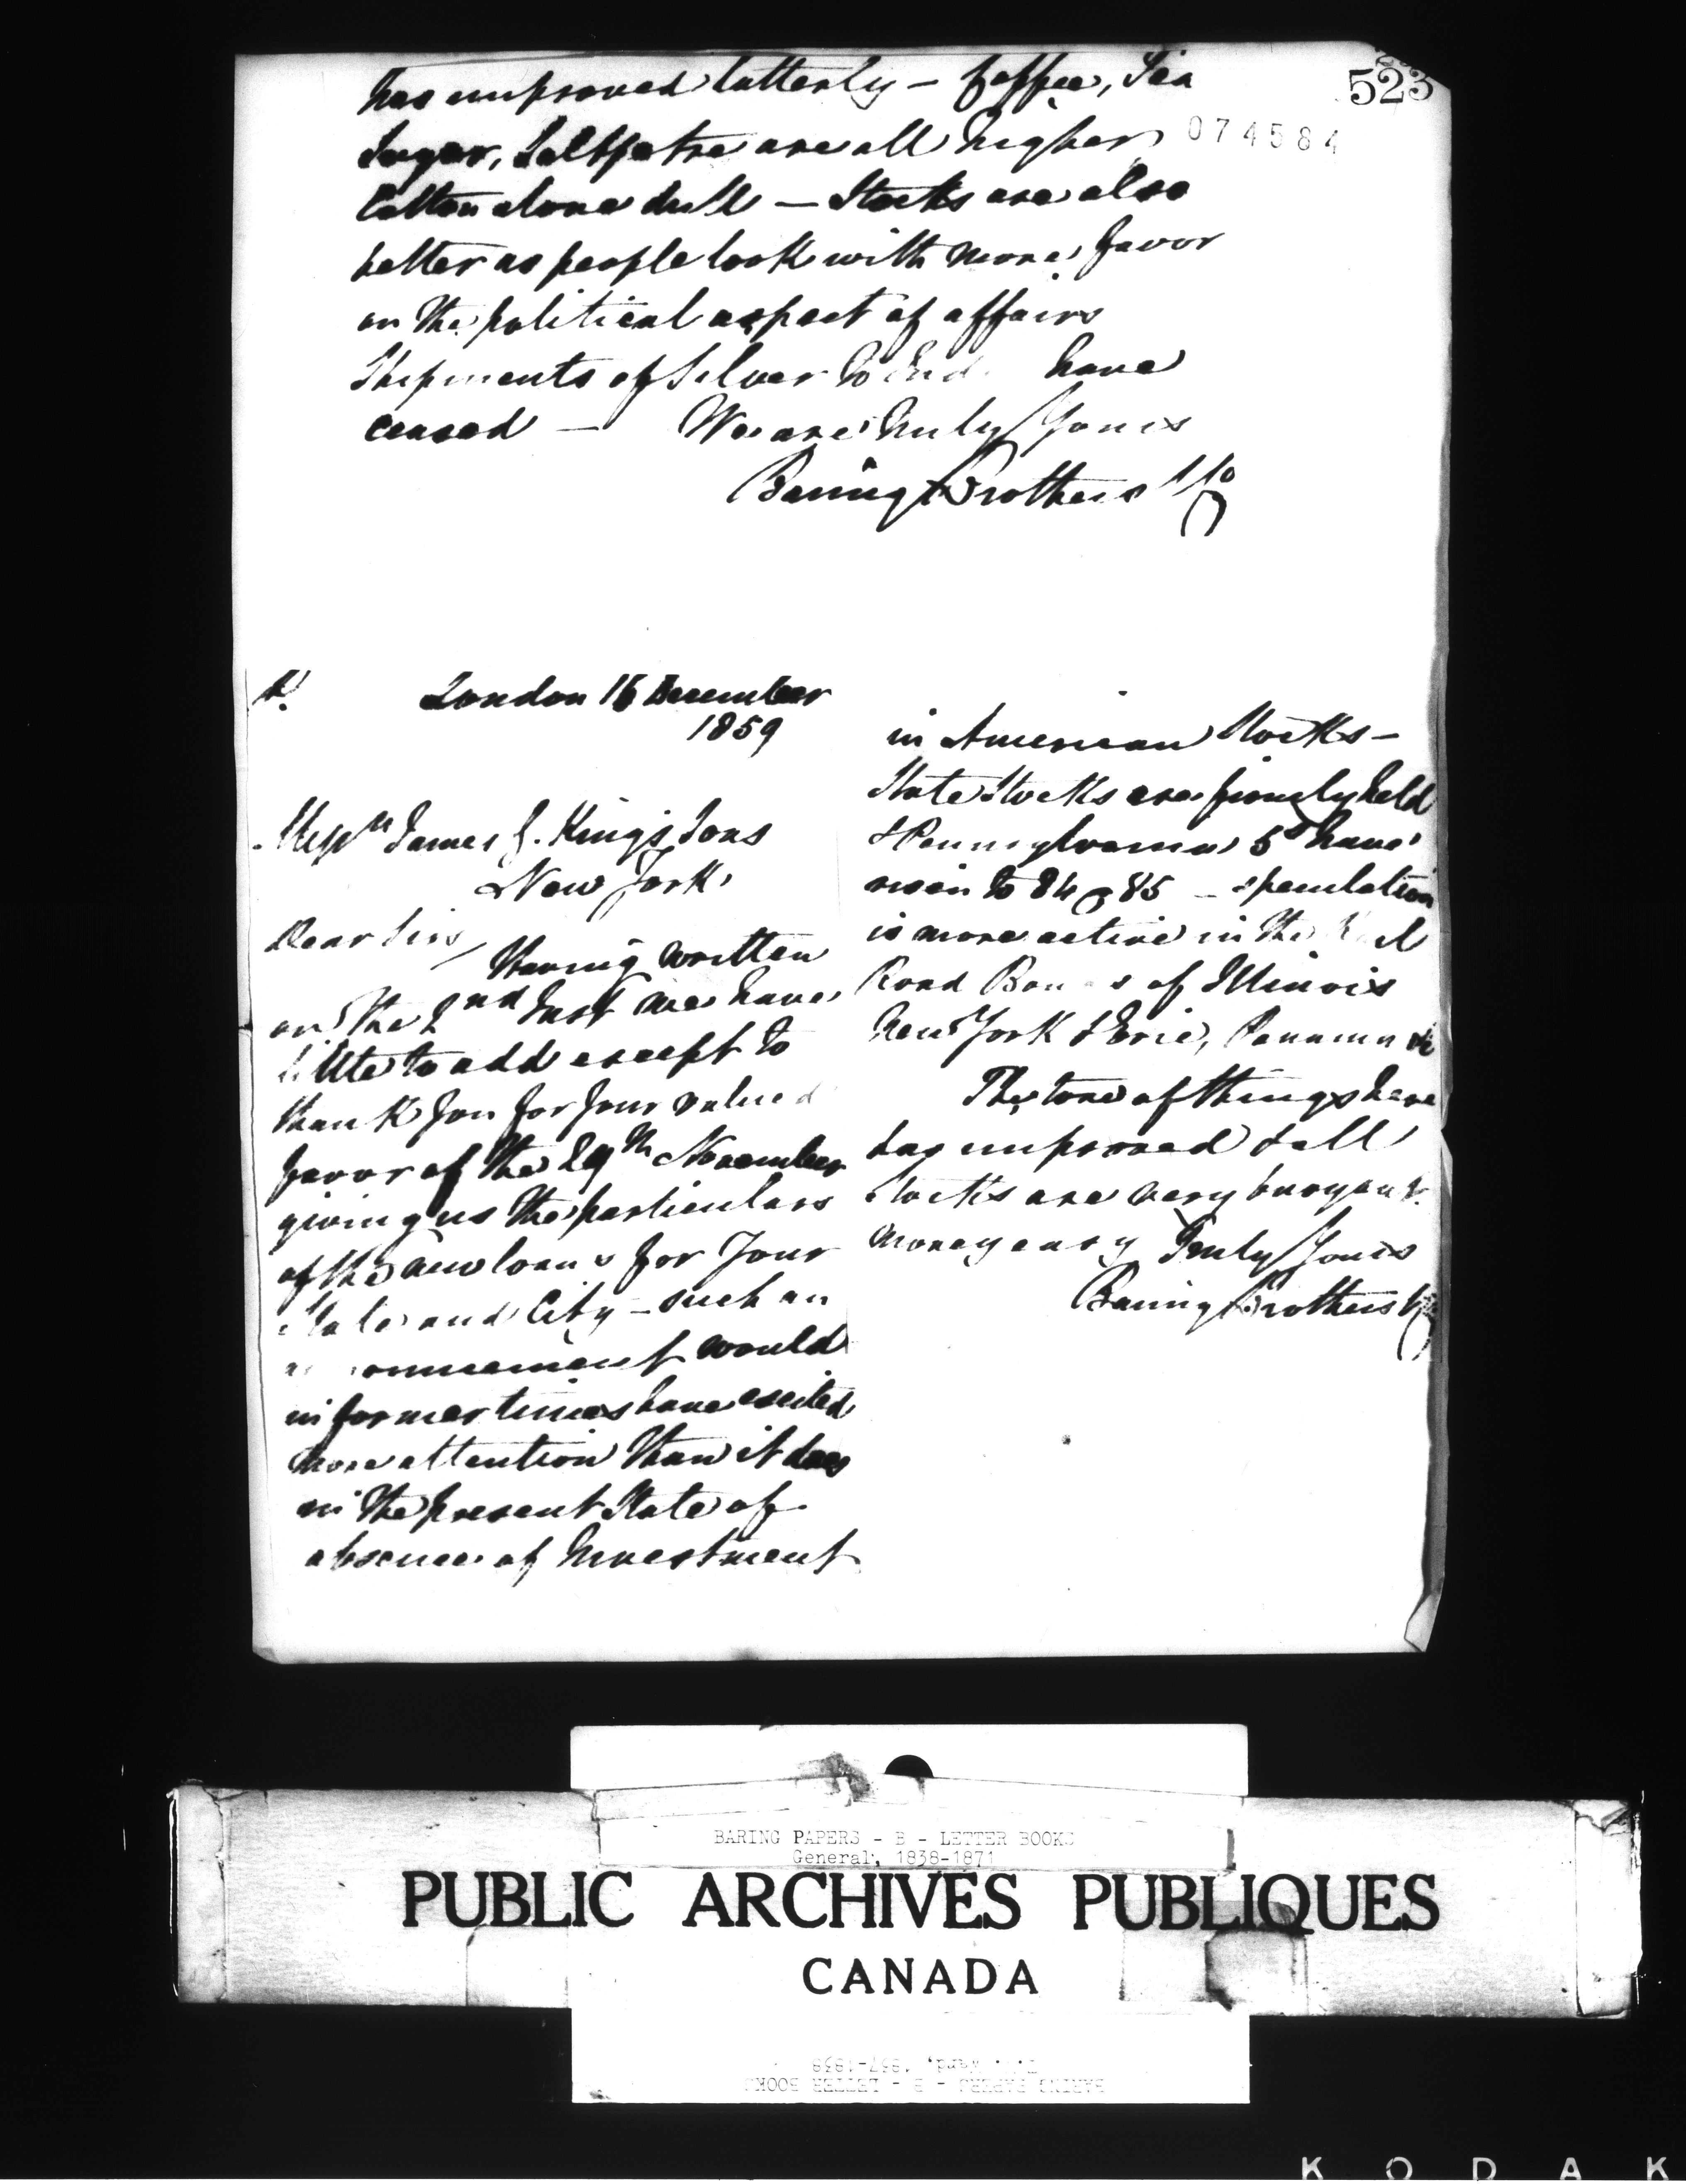 523
074584
has improved latterly – Coffee, Tea
Sugar, Saltpetre are all higher
Cotton alone dull – Stocks are also
better as people look with more favor
on the political aspect of affairs
Shipments of Silver to Ind have
ceased – We are truly Yours
Baring Brothers & Co
London 16 December
1859
Messrs James G. King's Sons
New York
Dear Sirs
Having written
on the 2nd Inst we have
little to add except to
thank you for your valued
favor of the 29th November
giving us the particulars
of the new loans for Your
State and City – such an
announcement would
in former times have excited
more attention than it does
in the present State of
absence of Investment
in American Stocks –
State Stocks are firmly held
& Pennsylvania 5s have
risen to 84 @ 85 – speculation
is more active in the Rail
Road Bonds of Illinois
New York & Erie, Panama &c
The tone of things here
has improved & all
Stocks are very buoyant &
money easy Truly Yours
Baring Brothers & Co
BARING PAPERS - B - LETTER BOOKS
General, 1838-1871
PUBLIC ARCHIVES PUBLIQUES
CANADA
BARING PAPERS - B - LETTER BOOKS
KODAK